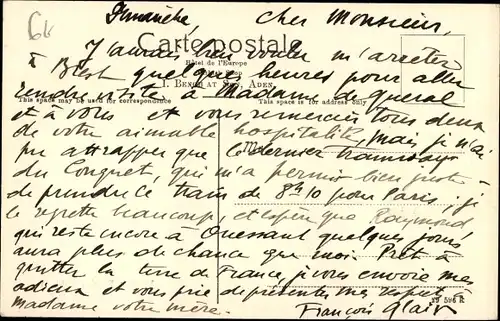 6k
Dimanche, Cher Monsieur,
Carte postale
J'aurais bien voulu m'arrêter
Hôtel de l'Europe
à Brest quelques heures pour aller
I. BENGHIAT ADEN
rendre visite à Madame de Gueral
This space may be used for correspondence This space is for address only
et à vous et vous remercier tous deux
de votre aimable hospitalité, mais je n'ai
pu attrapper que le dernier tramways
M
du Conquet, qui m'a permis bien juste
de prendre ce train de 8h10 pour Paris, je
le regrette beaucoup, et espère que Raymond
qui reste encore à Ouessant quelques jours
aura plus de chance que moi. Prêt à
quitter la terre de France, je vous envoie mes
adieux et vous prie de présenter mes respects à
Madame votre mère. François